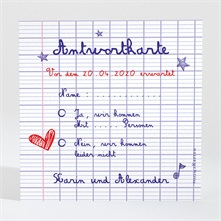 Antwortkarte
Vor dem 20.04.2020 erwartet
Name : ............
Ja, wir kommen
Mit ..... Personen
Nein, wir kommen
leider nicht
Karin und Alexander